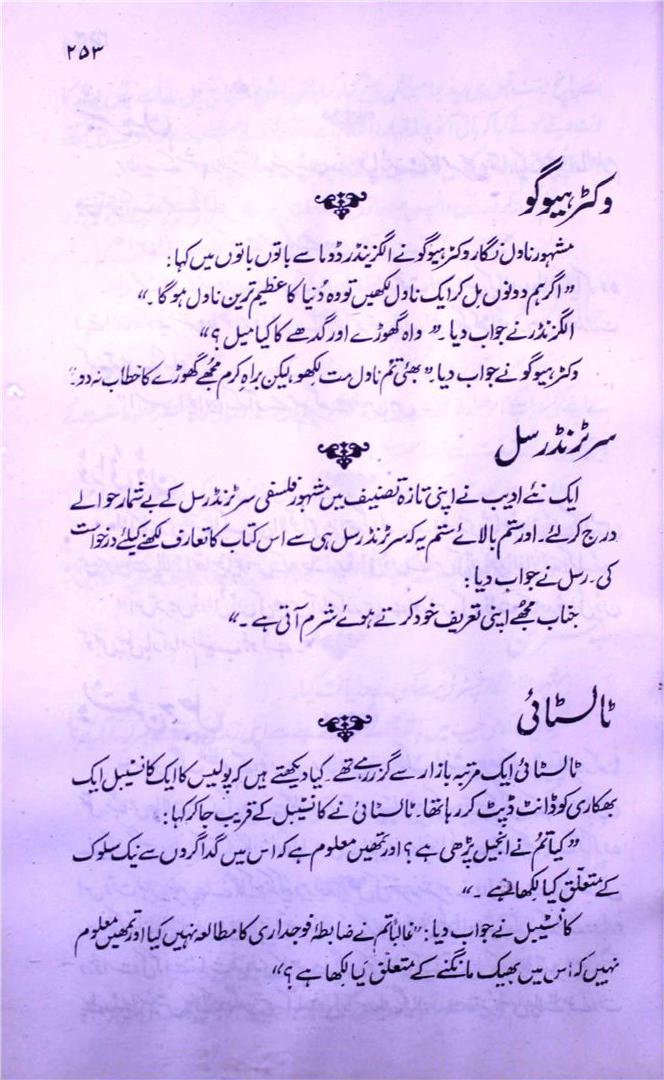 ۲۵۳
وکٹر ہیوگو
مشہور ناول نگار وکٹر ہیوگو نے الگزینڈر ڈوما سے باتوں باتوں میں کہا :
"اگر ہم دونوں مل کر ایک ناول لکھیں تو وہ دُنیا کا عظیم ترین ناول ہوگا۔"
الگزنڈر نے جواب دیا۔" واہ گھوڑے اور گدھے کا کیا میل ؟"
وکٹر ہیوگو نے جواب دیا۔"بھئی تم ناول مت لکھو، لیکن براہِ کرم مجھے گھوڑے کا خطاب نہ دو۔"
سر ٹرنڈر سل
ایک نئے ادیب نے اپنی تازہ تصنیف میں مشہور فلسفی سر ٹرنڈر سل کے بے شمار حوالے
درج کر لئے۔ اور ستم بالائے ستم یہ کہ سر ٹرنڈر سل ہی سے اس کتاب کا تعارف لکھنے کیلئے درخواست
کی۔ رسل نے جواب دیا :
جناب مجھے اپنی تعریف خود کرتے ہوئے شرم آتی ہے۔"
ٹالسٹائی
ٹالسٹائی ایک مرتبہ بازار سے گزر رہے تھے۔ کیا دیکھتے ہیں کہ پولیس کا ایک کانسٹیبل ایک
بھکاری کو ڈانٹ ڈپٹ کر رہا تھا۔ ٹالسٹائی نے کانسٹیبل کے قریب جا کر کہا :
"کیا تم نے انجیل پڑھی ہے ؟ اور تمھیں معلوم ہے کہ اس میں گداگروں سے نیک سلوک
کے متعلق کیا لکھا ہے۔"
کانسٹیبل نے جواب دیا : "غالباً تم نے ضابطۂ فوجداری کا مطالعہ نہیں کیا اور تمھیں معلوم
نہیں کہ اس میں بھیک مانگنے کے متعلق کیا لکھا ہے ؟"